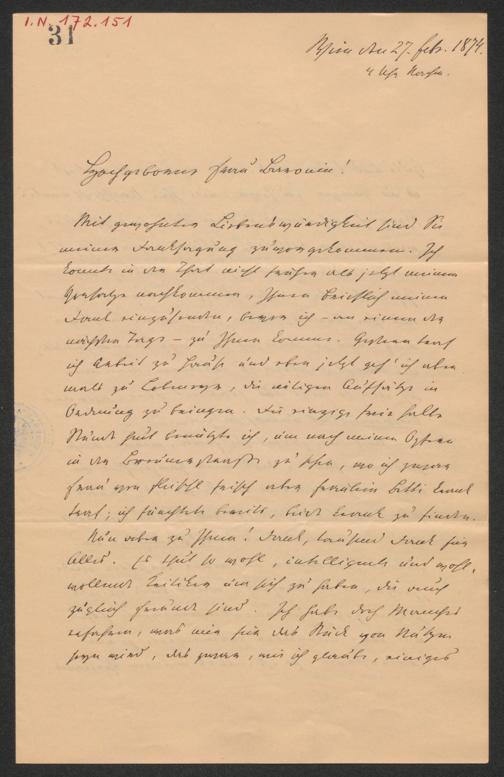 I.N. 172.151
31
Wien den 27. Feb. 1874.
4 Uhr Nachm.
Hochgeborene Frau Baronin!
Mit gewohnter Liebenswürdigkeit sind Sie
meiner Danksagung zuvorgekommen. Ich
konnte in der That nicht früher als jetzt meinem
Vorsatze nachkommen, Ihnen brieflich meinen
Dank einzusenden, bevor ich – an einem der
nächsten Tage – zu Ihnen komme. Gestern traf
ich Arbeit zu Hause und eben jetzt geh' ich aber
mals zu, die nötigen Aufsätze in
Ordnung zu bringen. Die einzige freie halbe
Stunde heut benützte ich, um nach meinen
in der zu sehn, wo ich zwar
Frau von Fleischl frisch aber Fräulein Betti krank
traf; ich fürchtete bereits, beide krank zu finden.
Nun aber zu Ihnen! Dank, tausend Dank für
Alles. Es thut so wohl, intelligente und wohl-
wollende Kritiker um sich zu haben, die auch
zugleich Freunde sind. Ich habe doch Manches
erfahren, was mir für das Stück von Nutzen
seyn wird, das zwar, wie ich glaube, einiges